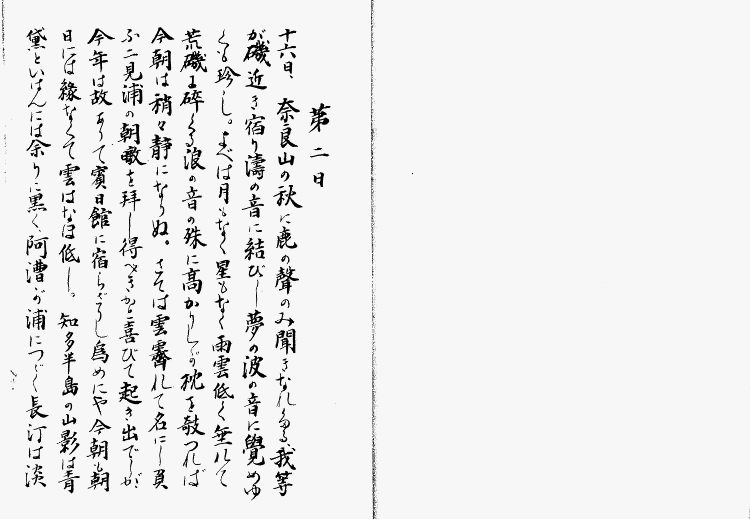 第二日
十六日、奈良山の秋に鹿の聲のみ聞きなれたる我等
が磯近き宿り濤の音に結びし夢の波の音に覺めゆ
くも珍し。よべは月もなく星もなく雨雲低く垂れて
荒磯に碎くる浪の音の殊に高かりしが枕を攲つれば
今朝は稍々靜になりぬ。さては雲霽れて名にし負
ふ二見浦の朝暾を拜し得べきかと喜びて起き出でしが
今年は故ありて賓日館に宿らざりし爲めにや今朝も朝
日には緣なくて雲はなほ低し。知多半島の山影は青
黛といはんには余りに黒く阿漕が浦につゞく長汀は淡